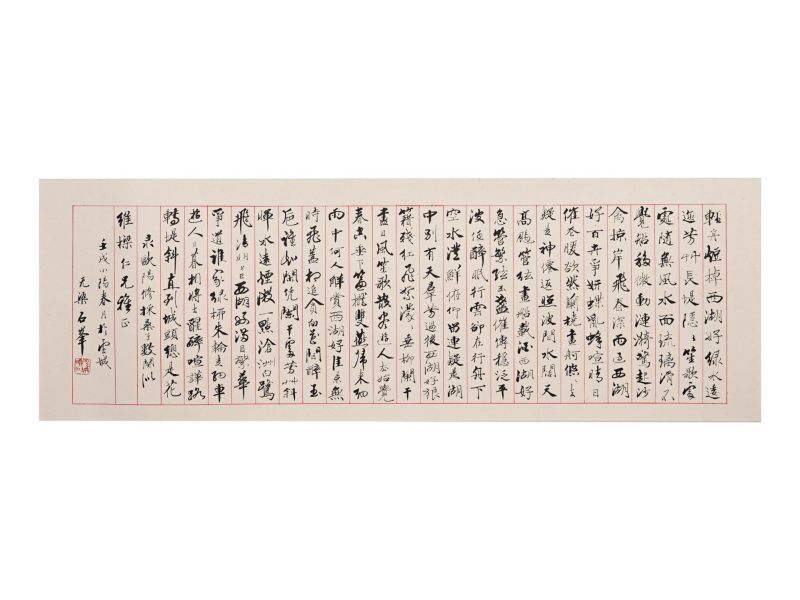 輕舟短棹西湖好綠水逶
迤芳艸長堤隱〻笙歌處
處隨無風水面琉璃滑不
覺船移微動漣漪驚起沙
禽掠岸飛春深雨過西湖
好百卉爭妍蝶亂蜂喧晴日
催花暖欲然蘭橈畫舸悠〻去
疑是神僊返照波間水闊天
高颺管絃畫船載酒西湖好
急管繁絃玉盞催傳穩泛平
波任醉眠行雲卻在行舟下
空水澄鮮俯仰留連疑是湖
中別有天羣芳過後西湖好狼
籍殘紅飛絮濛〻垂柳闌干
盡日風笙歌散盡遊人去始覺
春空垂下簾櫳雙燕歸來細
雨中何人解賞西湖好佳景無
時飛蓋相追貪向花間醉玉
卮誰知閑憑闌干處芳艸斜
暉水遠煙微一點滄洲白鷺
飛清明上巳西湖好滿目繁華
爭道誰家綠柳朱輪走鈿車
遊人日暮相將去醒醉喧譁路
轉堤斜直到城頭總是花
录歐陽修採桑子數闋似
維樑仁兄雅正
壬戌小陽春月於雪城
元樂石峯